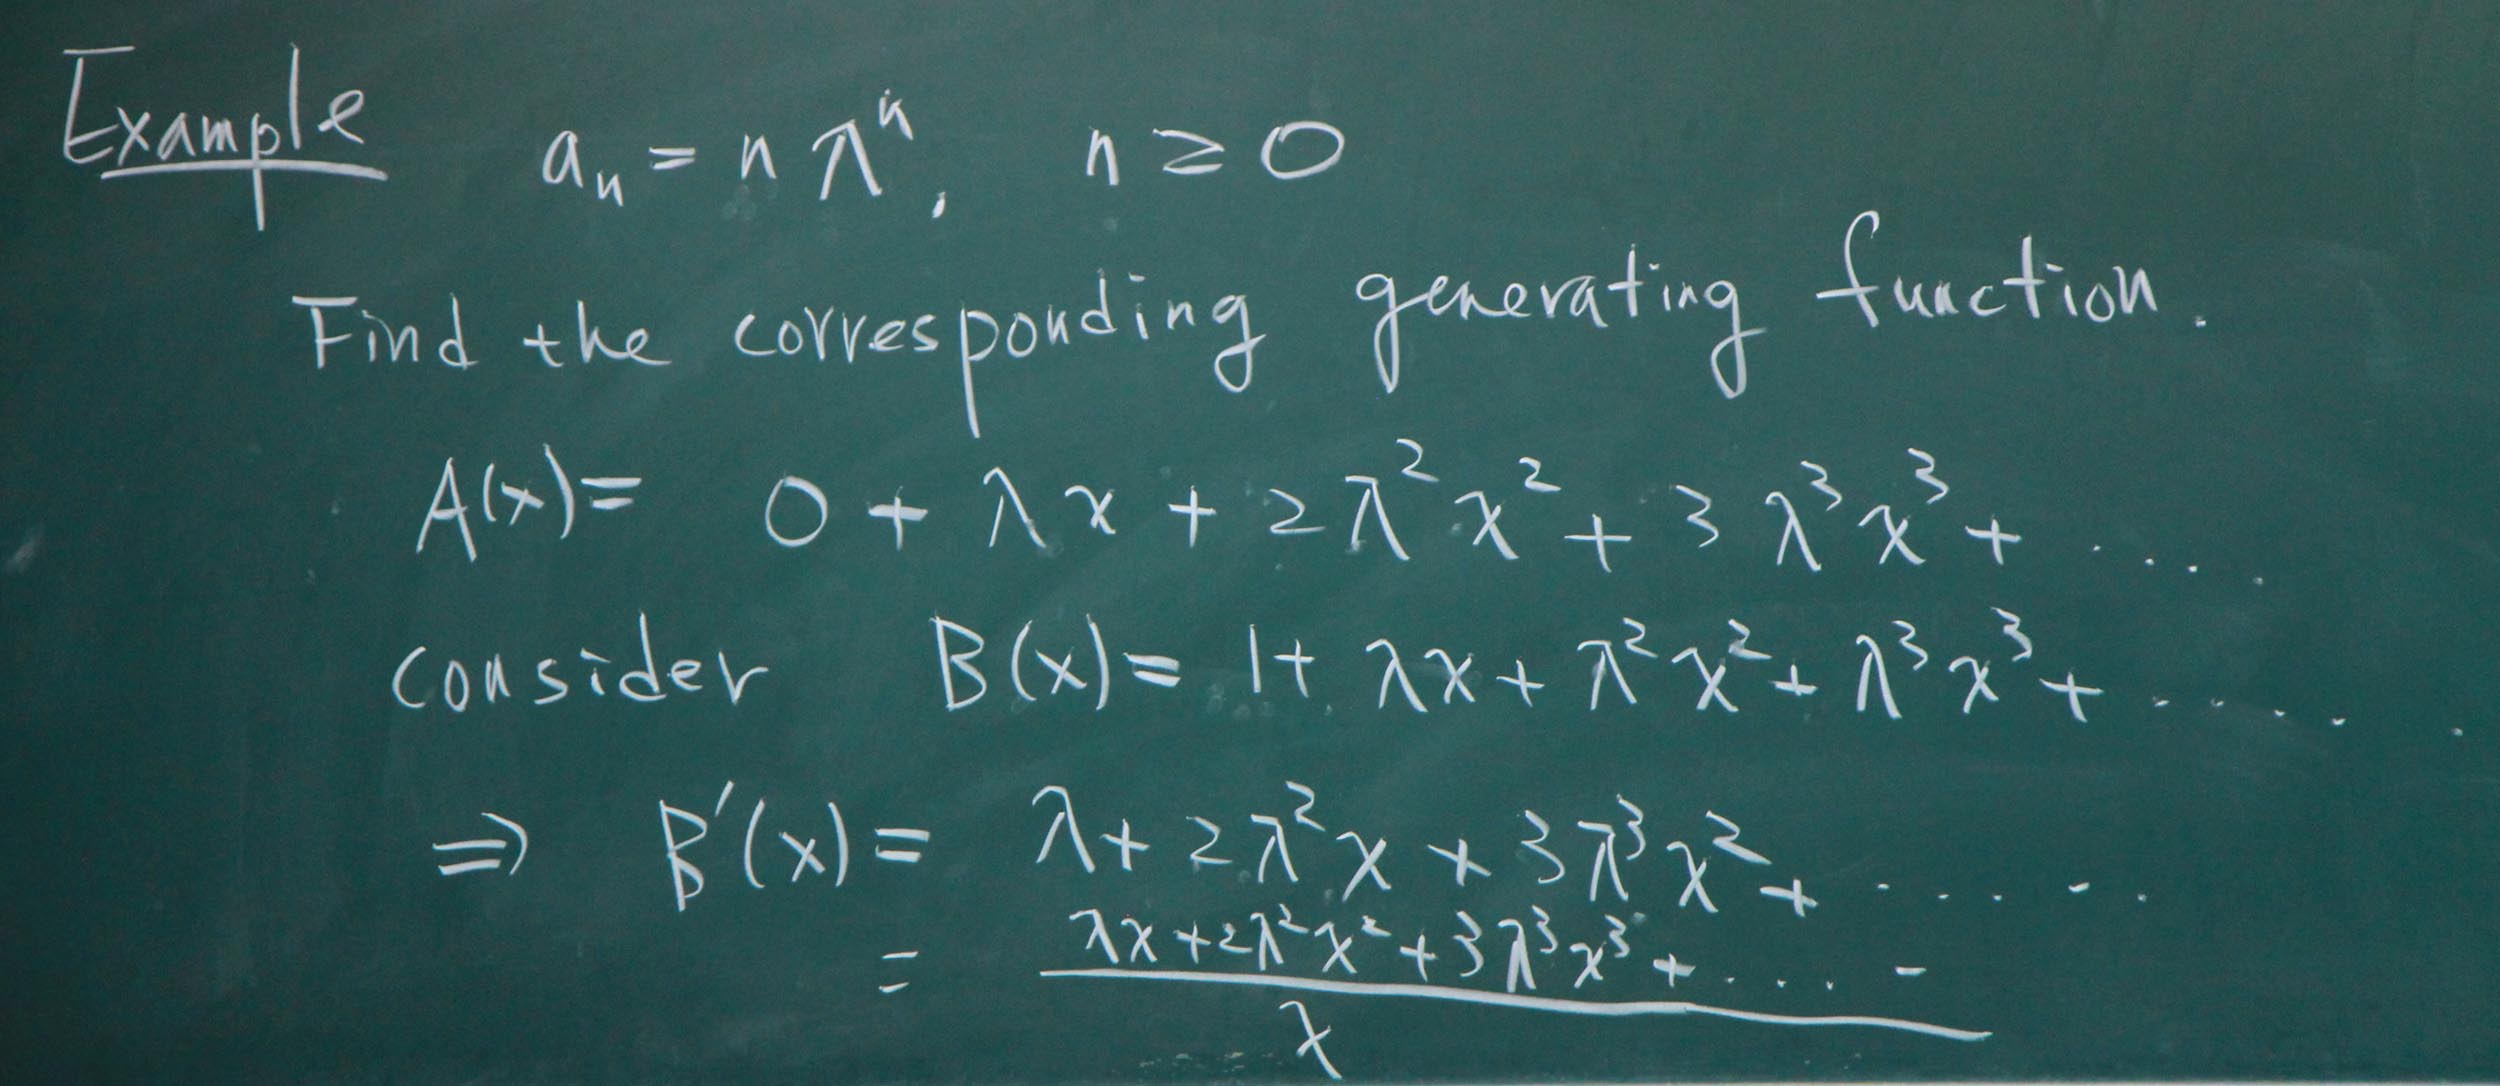 Example aₙ = n λⁿ, n ≥ 0
Find the corresponding generating function.
A(x) = 0 + λx + 2λ²x² + 3λ³x³ + ....
consider B(x) = 1 + λx + λ²x² + λ³x³ + .....
⇒ B'(x) = λ + 2λ²x + 3λ³x² + .....
= (λx + 2λ²x² + 3λ³x³ + ....) / x